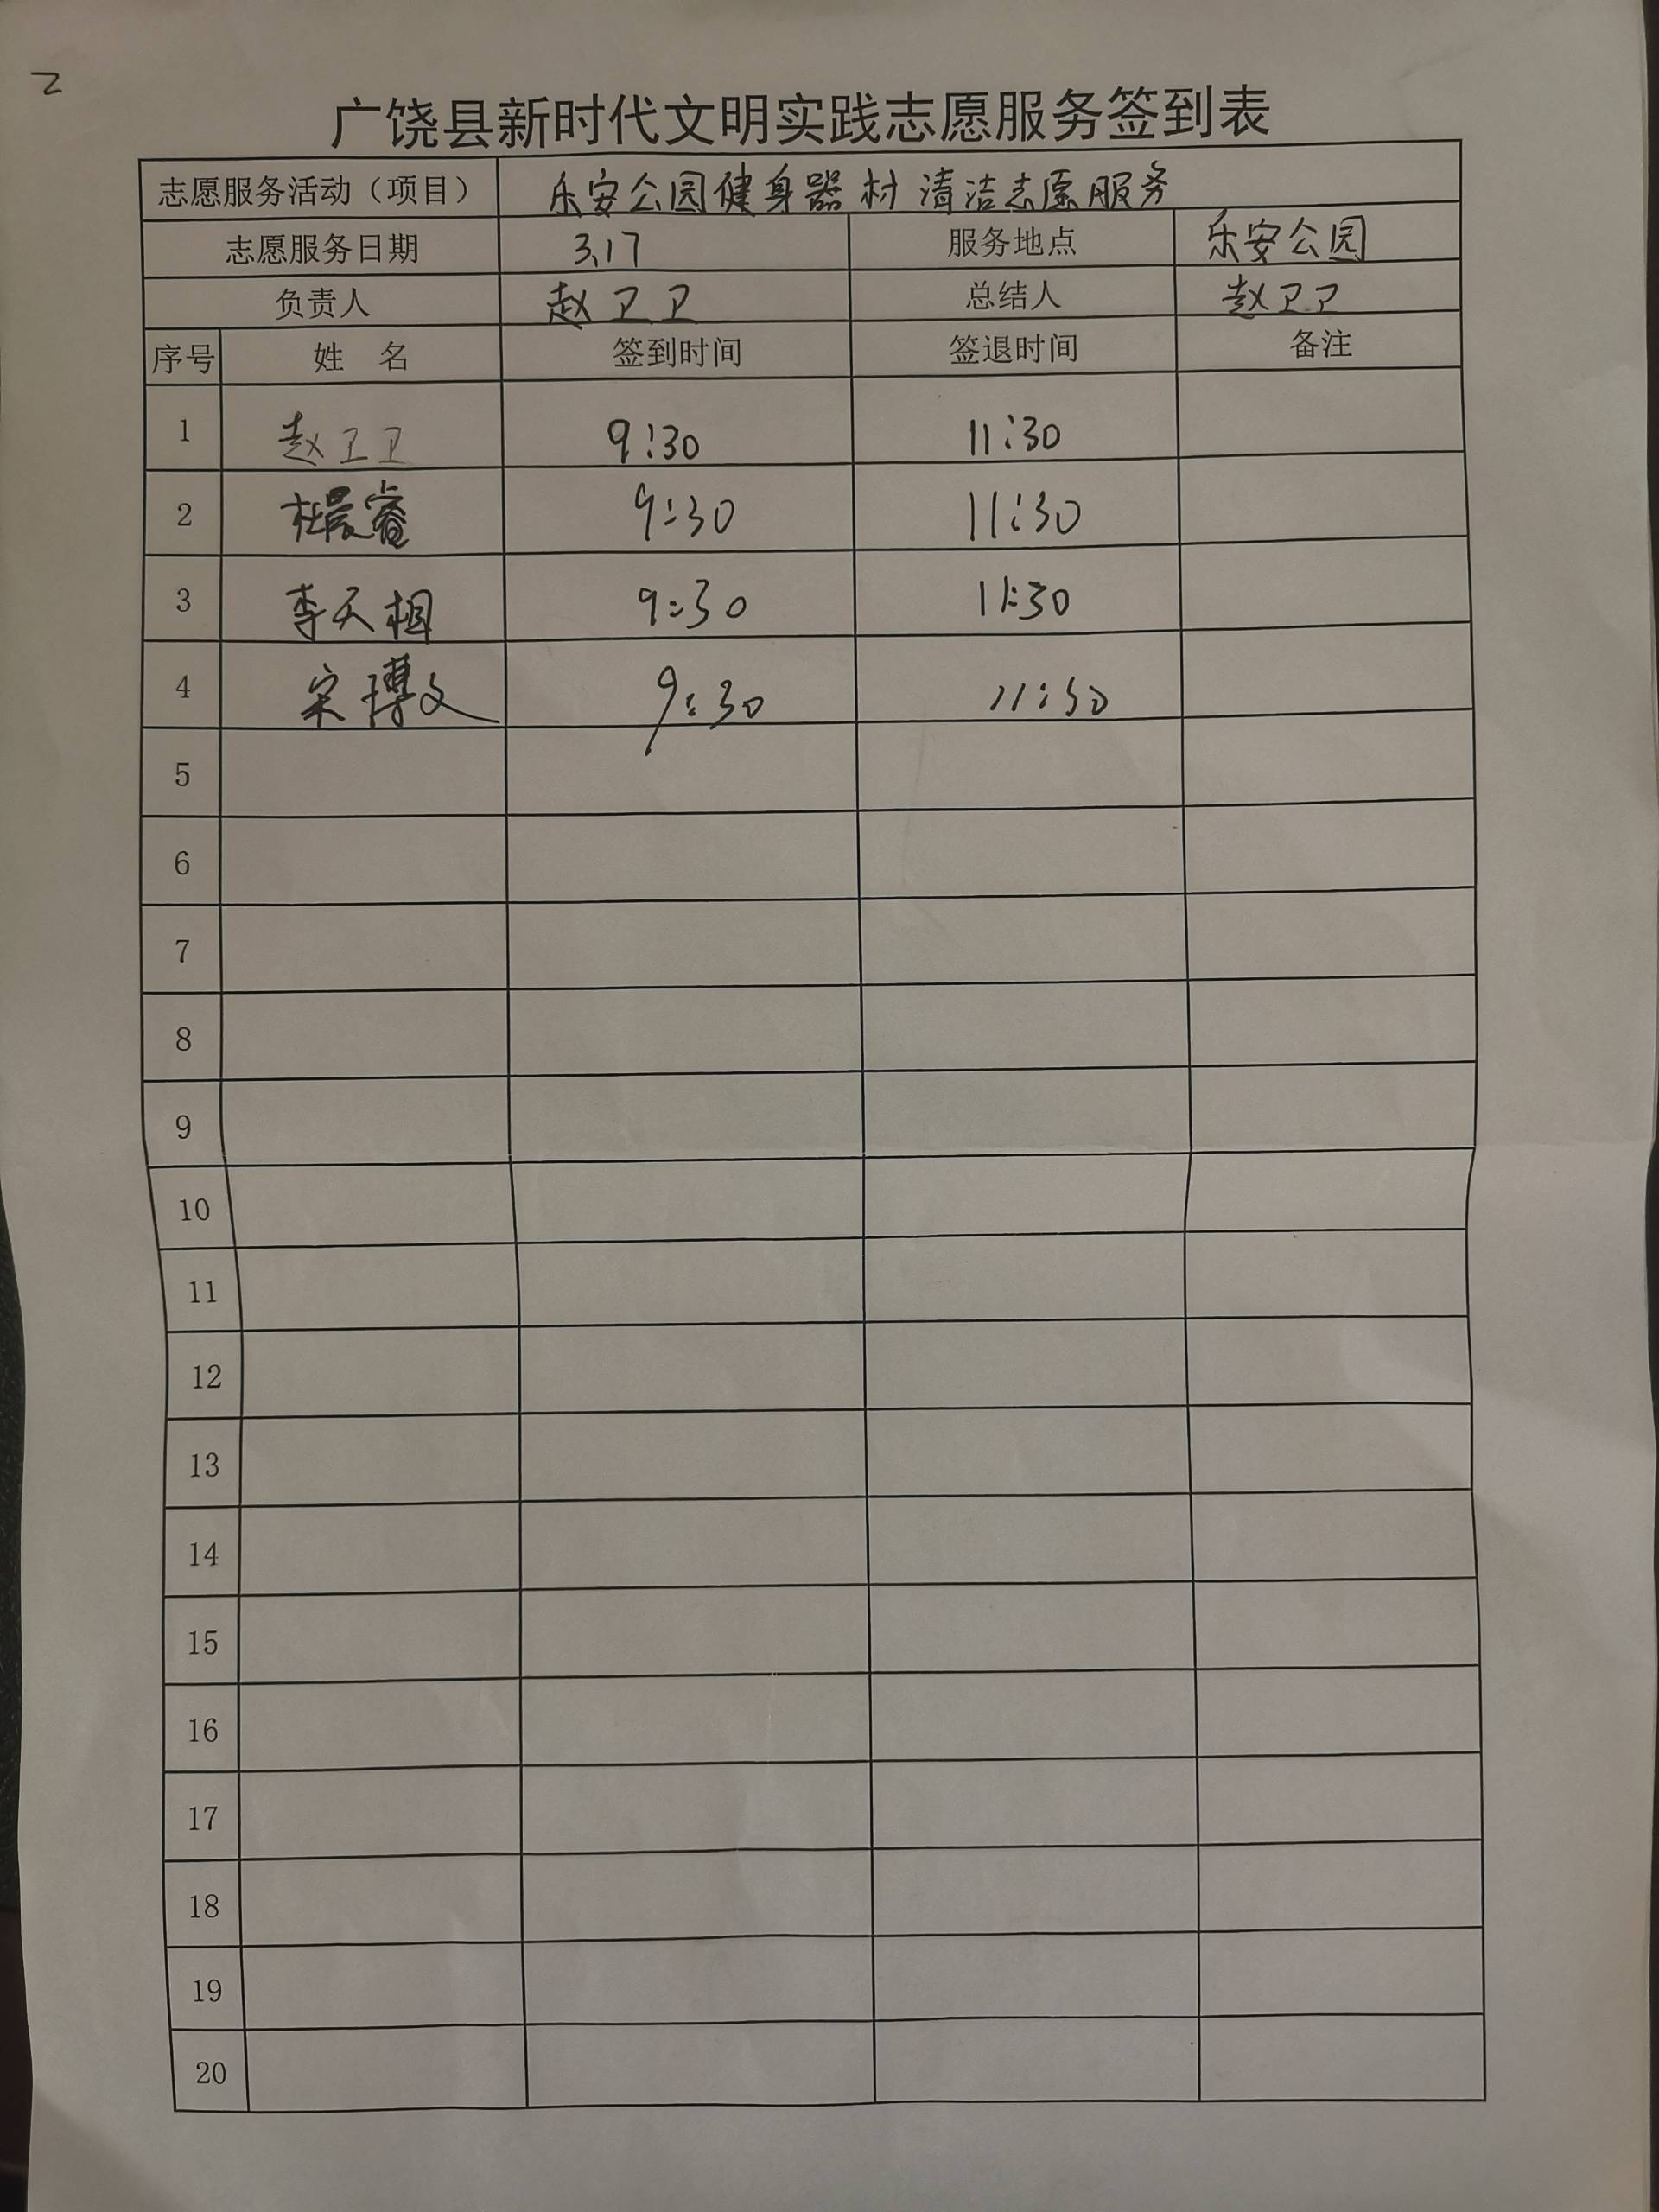 2
广饶县新时代文明实践志愿服务签到表
志愿服务活动（项目） 乐安公园健身器材清洁志愿服务
志愿服务日期 3.17 服务地点 乐安公园
负责人 赵卫卫 总结人 赵卫卫
序号 姓 名 签到时间 签退时间 备注
1 赵卫卫 9:30 11:30
2 杜晨睿 9:30 11:30
3 李天相 9:30 11:30
4 宋博文 9:30 11:30
5
6
7
8
9
10
11
12
13
14
15
16
17
18
19
20